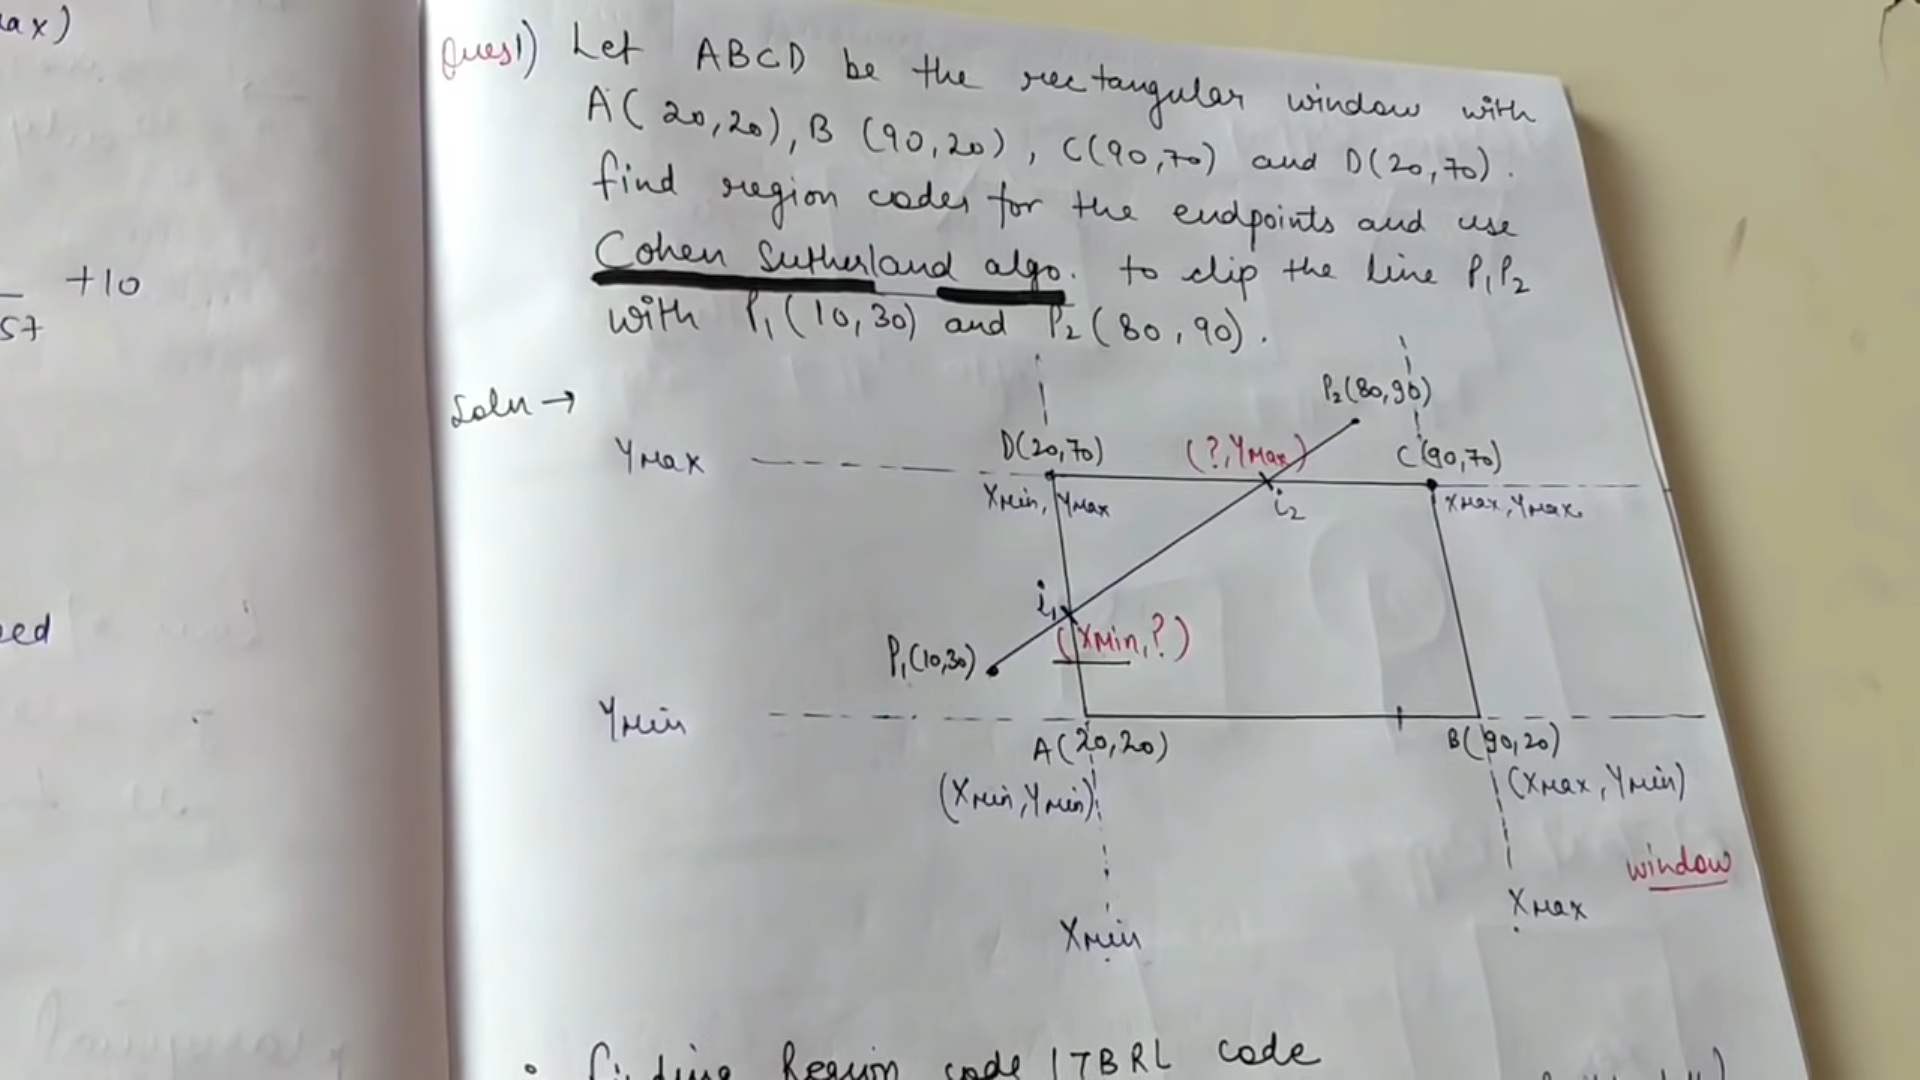 ax)
+10
57
eed
Ques1) Let ABCD be the rectangular window with
A(20,20), B (90,20), C(90,70) and D(20,70).
find region codes for the endpoints and use
Cohen Sutherland algo. to clip the line P1P2
with P1(10,30) and P2(80,90).
Soln →
P2(80,90)
YMax
D(20,70)
(?,YMax)
C(90,70)
XMin, YMax
i2
XMax,YMax
i1
(XMin,?)
P1(10,30)
YMin
A(20,20)
B(90,20)
(XMin,YMin)
(XMax,YMin)
window
XMax
XMin
• Finding Region code / TBRL code